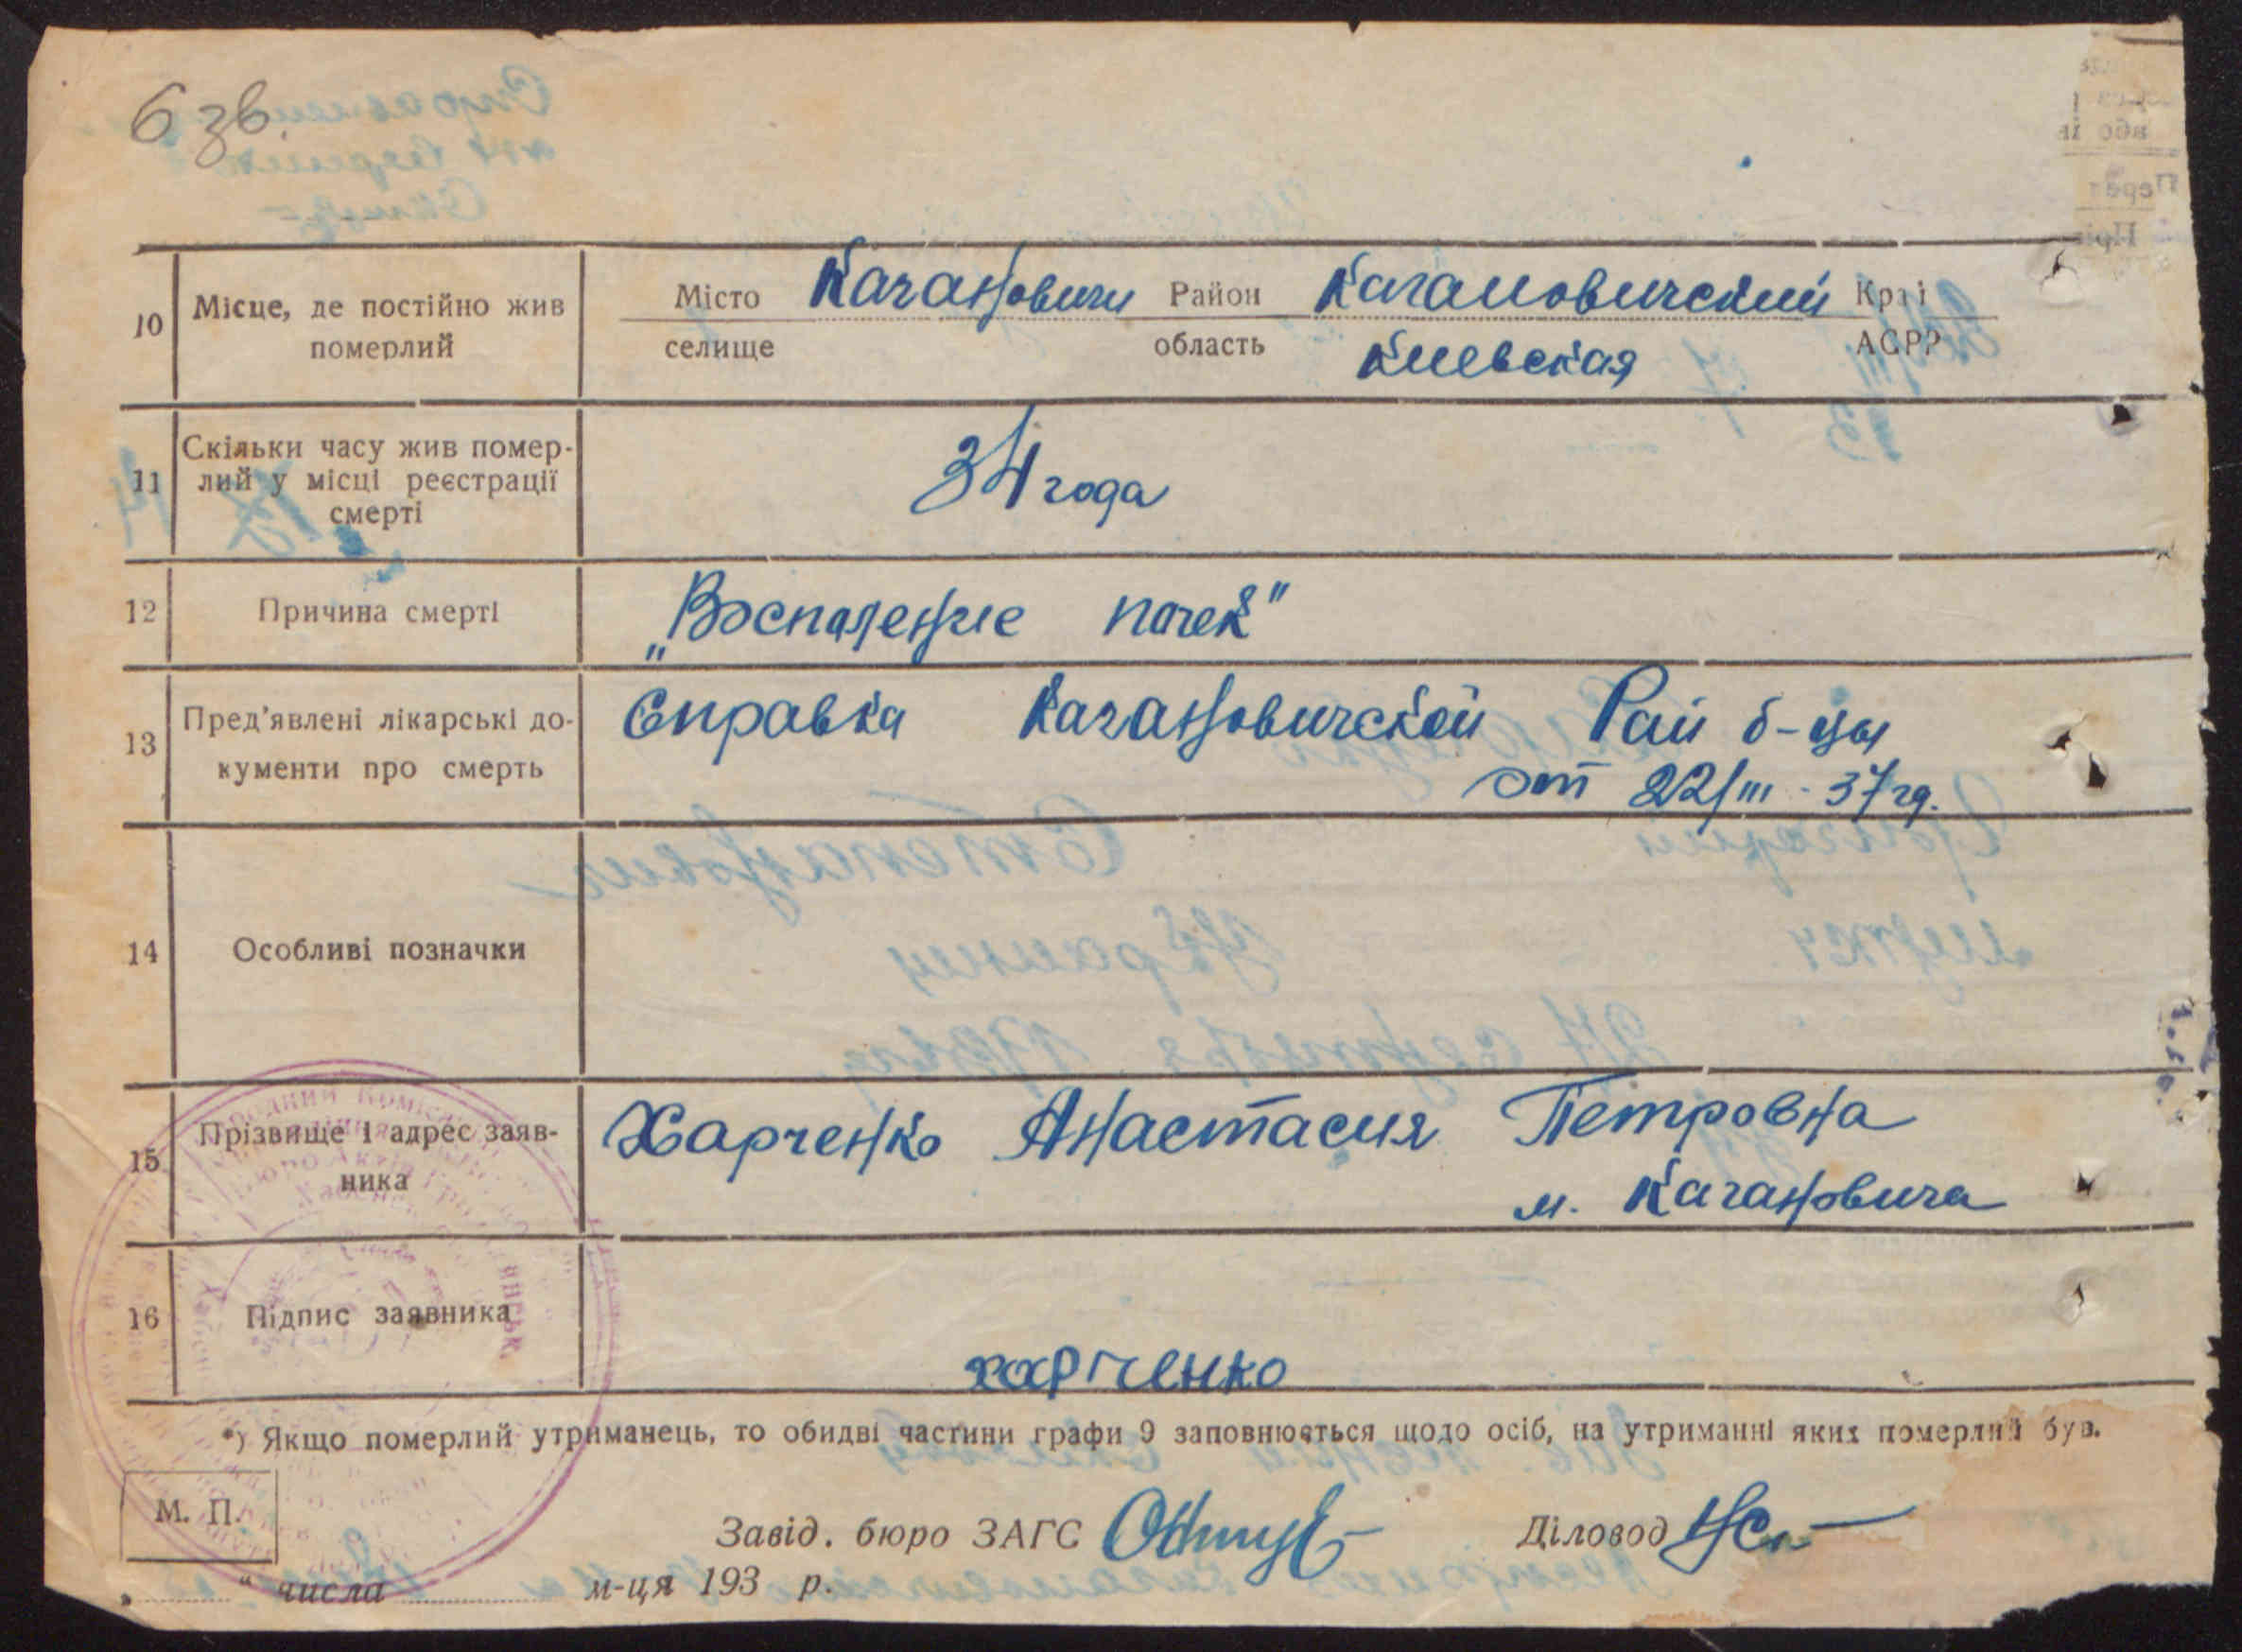 6 зв.
10 Місце, де постійно жив померлий
Місто Кагановичи Район Кагановичский Краї
селище область Киевская АСРР
11 Скільки часу жив помер-
лий у місці реєстрації
смерті
34 года
12 Причина смерті „Воспаление почек"
13 Пред'явлені лікарські до-
кументи про смерть
Справка Кагановичской Рай б-цы
от 22/III - 37 гд.
14 Особливі позначки
15 Прізвище і адрес заяв-
ника
Харченко Анастасия Петровна
м. Кагановича
16 Підпис заявника
харченко
*) Якщо померлий утриманець, то обидві частини графи 9 заповнюється щодо осіб, на утриманні яких померлий був.
М. П.
Завід. бюро ЗАГС Діловод
„ " числа м-ця 193 р.